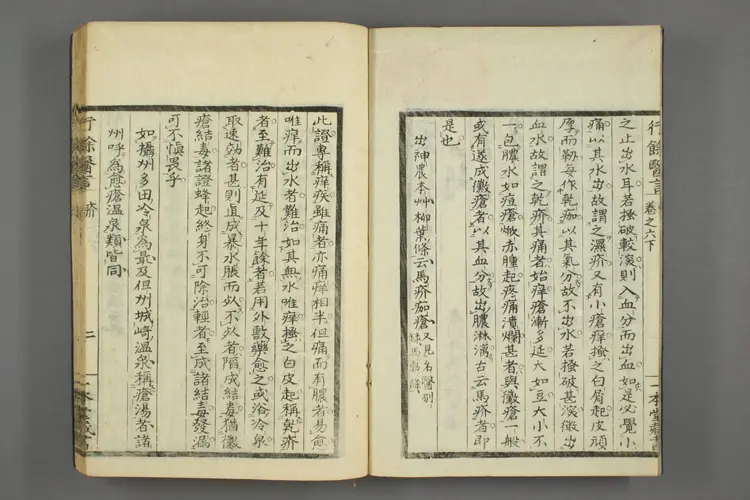 行餘醫言
卷之六下
一本堂藏書
之止出水耳若搔破較深則入血分而出血如是必覺小
痛以其水出故謂之濕疥又有小瘡痒搔之白屑起皮頑
厚而勒每作乾痂以其氣分故不出水若搔破甚深微出
血水故謂之乾疥其痛者始痒瘡漸多延大如豆大小不
一包膿水如痘瘡皆赤腫起疼痛潰爛甚者與黴瘡一般
或有遂成黴瘡者以其血分故出膿淋漓古云馬疥者即
是也
出神農本艸柳葉條云馬疥痂瘡又見名醫別
錄馬勃條
此證專稱痒疾雖痛者亦痛痒相半但痛而有膿者易愈
唯痒而出水者難治如其無水唯痒搔之白皮起稱乾疥
者至難治有延及十年餘者若用外敷藥愈之或浴冷泉
取速効者甚則直成暴水脹而以不以者陷成結毒猶黴
瘡結毒諸證蜂起終身不可除治輕者至成諸結毒發漏
可不愼畏乎
如攝州多田冷泉為最及但州城崎溫泉稱瘡湯者諸
州呼為愈瘡溫泉類皆同
行餘醫言
疥
二
一本堂藏書